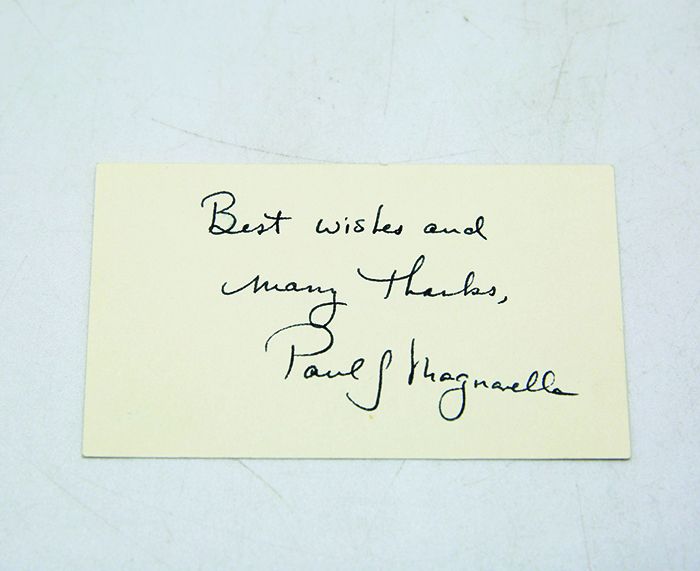 Best wishes and
many Thanks,
Paul J Magnarella